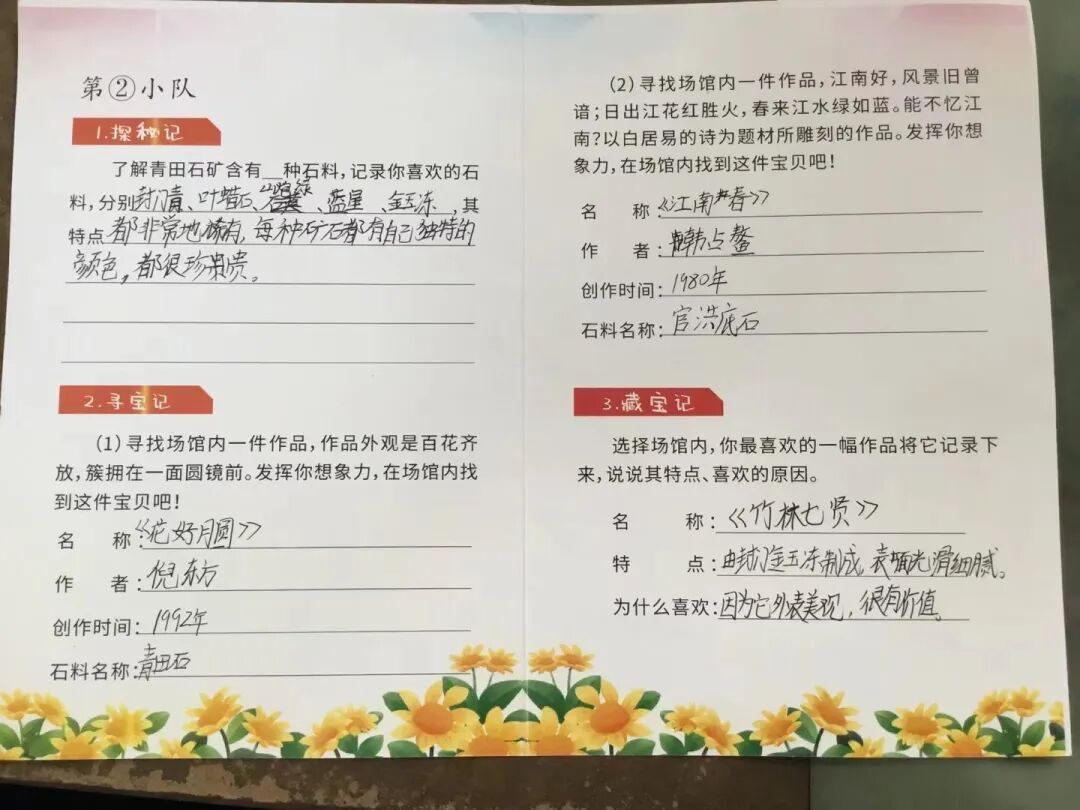 第②小队
1.探秘记
了解青田石矿含有__种石料,记录你喜欢的石
料,分别封门青、叶蜡石、、蓝星、金玉冻,其
特点都非常地稀有,每种矿石都有自己独特的
颜色,都很珍贵。
2.寻宝记
(1)寻找场馆内一件作品,作品外观是百花齐
放,簇拥在一面圆镜前。发挥你想象力,在场馆内找
到这件宝贝吧!
名 称:《花好月圆》
作 者:倪东方
创作时间:1992年
石料名称:青田石
(2)寻找场馆内一件作品,江南好,风景旧曾
谙;日出江花红胜火,春来江水绿如蓝。能不忆江
南?以白居易的诗为题材所雕刻的作品。发挥你想
象力,在场馆内找到这件宝贝吧!
名 称:《江南春》
作 者:韩占鳌
创作时间:1980年
石料名称:官洪底石
3.藏宝记
选择场馆内,你最喜欢的一幅作品将它记录下
来,说说其特点、喜欢的原因。
名 称:《竹林七贤》
特 点:由封门金玉冻制成,表面光滑细腻。
为什么喜欢:因为它外表美观,很有价值。